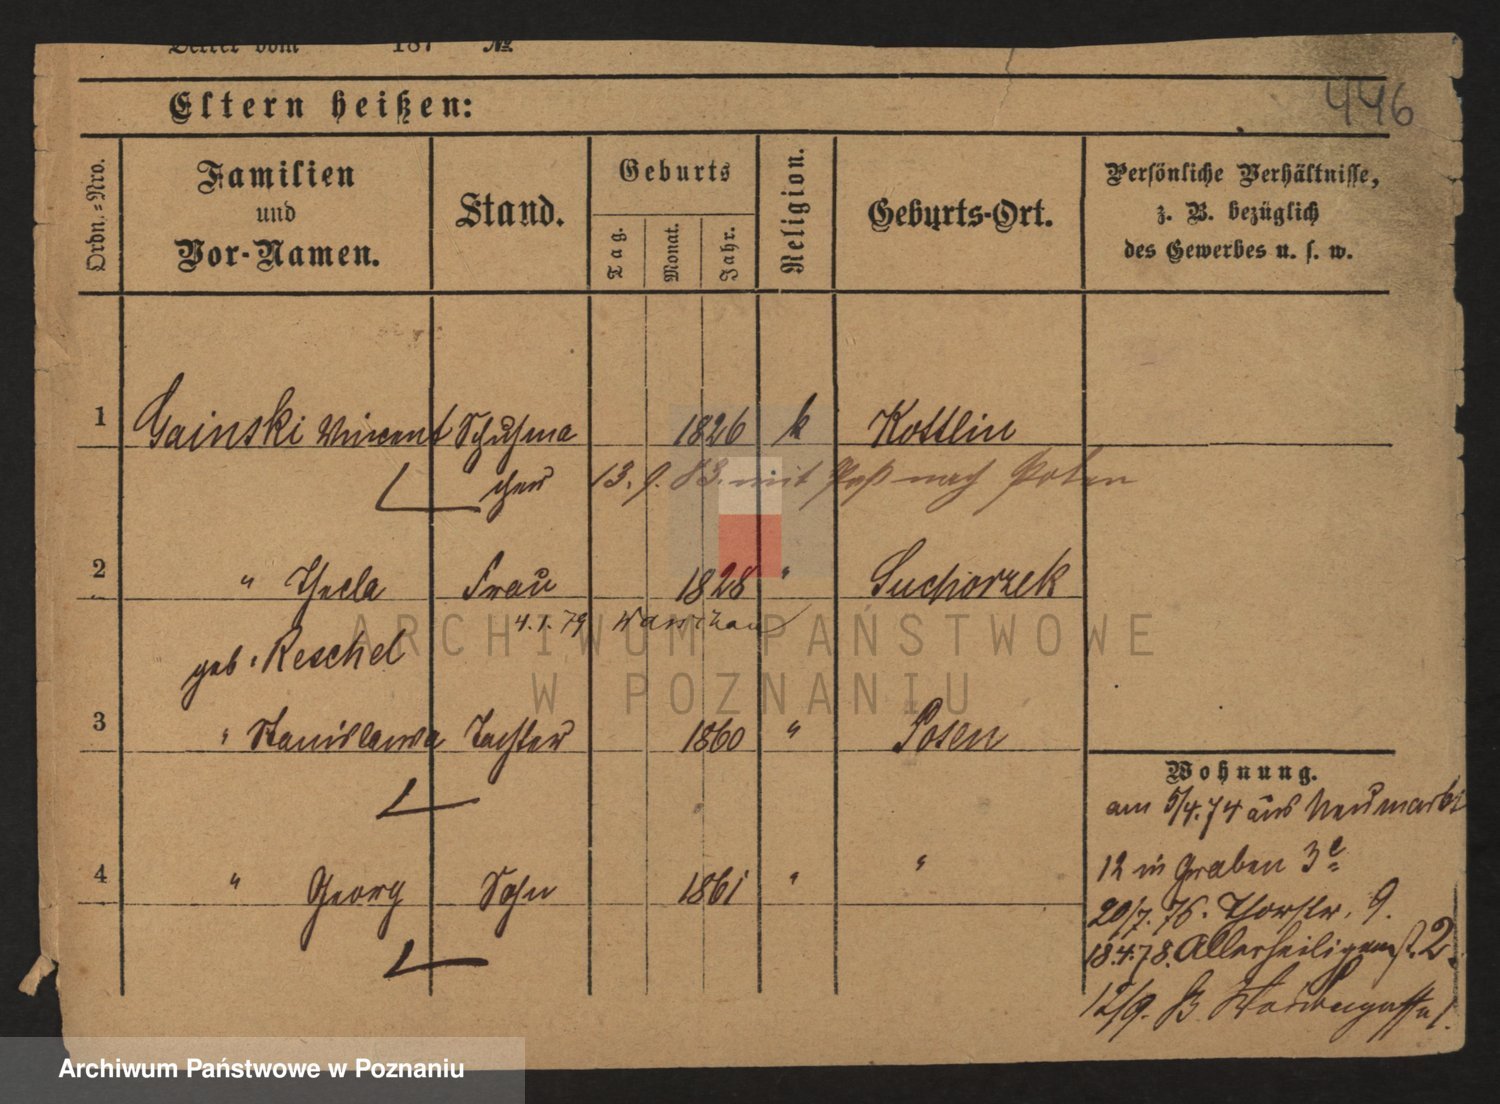 187 №
446
Eltern heißen:
Ordn.-Nro.
Familien
und
Vor-Namen.
Stand.
Geburts
Tag.
Monat.
Jahr.
Religion.
Geburts-Ort.
Persönliche Verhältnisse,
z. B. bezüglich
des Gewerbes u. s. w.
1 Gainski Vincent Schuhma 1826 k Kottlin
cher 13. 9. 83. mit Paß nach Polen
2 " Thecla Frau 1828 " Suchorzek
4.1.79 Warschau
geb. Reschel
3 " Stanislawa Tochter 1860 " Posen
Wohnung.
am 5/4.74 aus Neumarkt
4 " Georg Sohn 1861 " "
12 in Graben 3c
20/7.76. Thorstr. 9.
18.4.78. Allerheiligenst. 2.
12/9.
ARCHIWUM PAŃSTWOWE
W POZNANIU
Archiwum Państwowe w Poznaniu